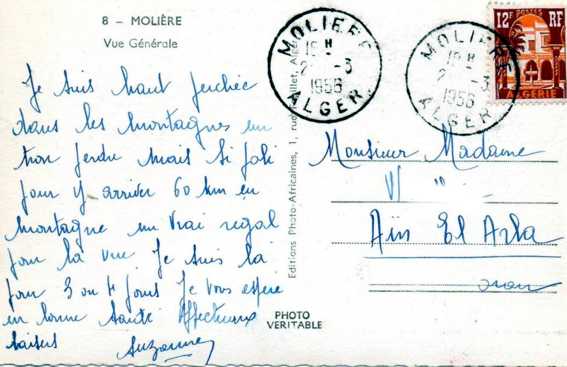 8 - MOLIÈRE
Vue Générale
Je suis haut perchée
dans les montagnes un
trou perdu mais si joli
pour y arriver 60 km en
montagne un vrai regal
pour la vue Je suis là
pour 3 ou 4 jours Je vous espère
en bonne santé Affectueux
baisers Suzanne
Editions Photo Africaines, 1, rue
PHOTO
VERITABLE
MOLIERE
19 H
2 - 3
1956
ALGER
MOLIERE
19 H
2 - 3
1956
ALGER
12F POSTES RF
ALGERIE
Monsieur Madame
" "
Aïn El Arba
Oran